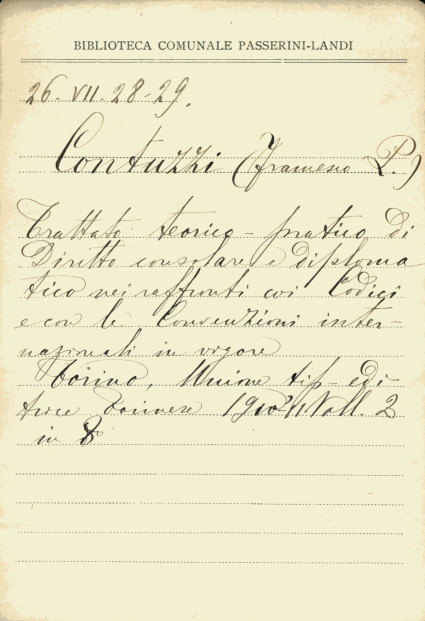 BIBLIOTECA COMUNALE PASSERINI-LANDI
26. VII. 28-29.
Contuzzi (Francesco P.)
Trattato teorico-pratico di
Diritto consolare e diploma
tico nei raffronti coi Codici
e con le Convenzioni inter-
nazionali in vigore
Torino, Unione tip-edi-
trice Torinese 1910-11 Voll. 2
in 8°